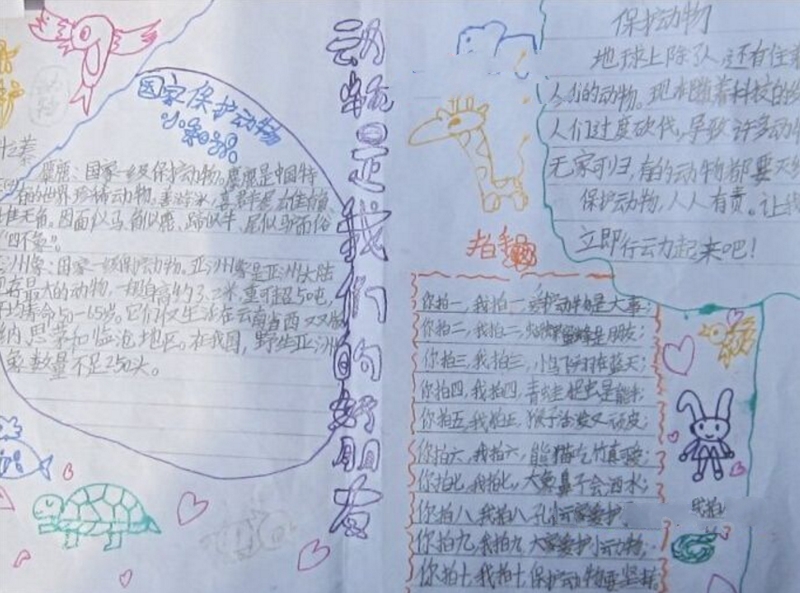 国家保护动物
小知识
麋鹿：国家一级保护动物。麋鹿是中国特
的世界珍稀动物。
无角。因面似马、角似鹿、蹄似牛、尾似驴而俗
"四不象"。
洲象：国家一级保护动物。亚洲象是亚洲大陆
最大的动物，一般身高约3.2米，重可超5吨，
寿命50-65岁。它们仅生活在云南省西双版
纳、思茅和临沧地区。在我国，野生亚洲
象数量不足250头。
动物是我们的好朋友
保护动物
地球上除了人，还有住着
人们的动物。现在随着科技的发
人们过度砍伐，导致许多动物
无家可归，有的动物都要灭绝
保护动物，人人有责。让我
立即行云力起来吧！
拍手歌
你拍一，我拍一，动物是大事；
你拍二，我拍二，是朋友；
你拍三，我拍三，小鸟飞翔在蓝天；
你拍四，我拍四，青蛙捉虫是能手；
你拍五，我拍五，猴子活泼又顽皮；
你拍六，我拍六，熊猫吃竹真可爱；
你拍七，我拍七，大象鼻子会洒水；
你拍八，我拍八，孔雀要爱护，
你拍九，我拍九，大家爱护小动物；
你拍十，我拍十，保护动物要坚持